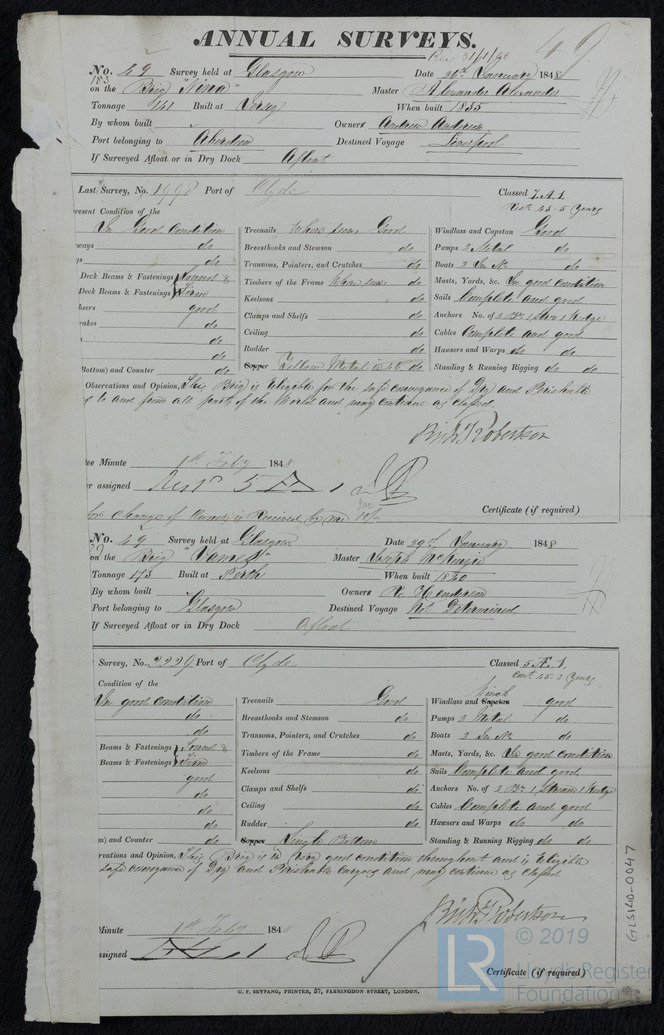 ANNUAL SURVEYS.
Rec 31/1/48
49
No. 49 Survey held at Glasgow Date 26th January 1848
183
on the Brig "Nina" Master Alexander Alexander
Tonnage 141 Built at When built 1835
By whom built Owners Andrew
Port belonging to Aberdeen Destined Voyage Liverpool
If Surveyed Afloat or in Dry Dock Afloat
Last Survey, No. 1998 Port of Clyde Classed 7.A.1.
45-5 Years
resent Condition of the
In Good Condition Treenails Where seen Good Windlass and Capston Good
ways do Breasthooks and Stemson do Pumps 2 Metal do
s do Transoms, Pointers, and Crutches do Boats 2 In No. do
Deck Beams & Fastenings Sound & Timbers of the Frame Where seen do Masts, Yards, &c. In good condition
Deck Beams & Fastenings Firm Keelsons do Sails Complete and good
heers good Clamps and Shelfs do Anchors No. of 2 Br 1 Strm 1 Kedge
rakes do Ceiling do Cables Complete and good
do Rudder do Hawsers and Warps do do
Bottom) and Counter do Copper Yellow Metal in 46 do Standing & Running Rigging do do
Observations and Opinion, This Brig is Eligible for the safe conveyance of Dry and Perishable
to and from all parts of the World and may continue as classed
Robertson
ee Minute 1st Feby 1848
er assigned 5 A 1
change of Owners is Received 10/-
Certificate (if required)
No. 49 Survey held at Glasgow Date 29th January 1848
on the Brig "James" Master Joseph McKenzie
Tonnage 173 Built at Perth When built 1840
By whom built Owners Henderson
Port belonging to Glasgow Destined Voyage Not Determined
If Surveyed Afloat or in Dry Dock Afloat
Survey, No. 2229 Port of Clyde Classed 5.Æ.1.
Cont. 45-2 Years
Condition of the
Winch
In good condition Treenails Good Windlass and Capston good
do Breasthooks and Stemson do Pumps 2 Metal do
do Transoms, Pointers, and Crutches do Boats 2 In No. do
Beams & Fastenings Sound & Timbers of the Frame do Masts, Yards, &c. In good condition
Beams & Fastenings Firm Keelsons do Sails Complete and good
good Clamps and Shelfs do Anchors No. of 2 Br 1 Stream 1 Kedge
do Ceiling do Cables Complete and good
do Rudder do Hawsers and Warps do do
m) and Counter do Copper Single Bottom Standing & Running Rigging do do
rvations and Opinion, This Brig is in Very good condition throughout and is Eligible
safe conveyance of Dry and Perishable cargoes and may continue as classed
Robertson
Minute 1st Feby 1848
ssigned Æ 1
Certificate (if required)
U. F. SEYFANG, PRINTER, 57, FARRINGDON STREET, LONDON.
GLS140-0047
LR
© 2019
Lloyd's Register
Foundation